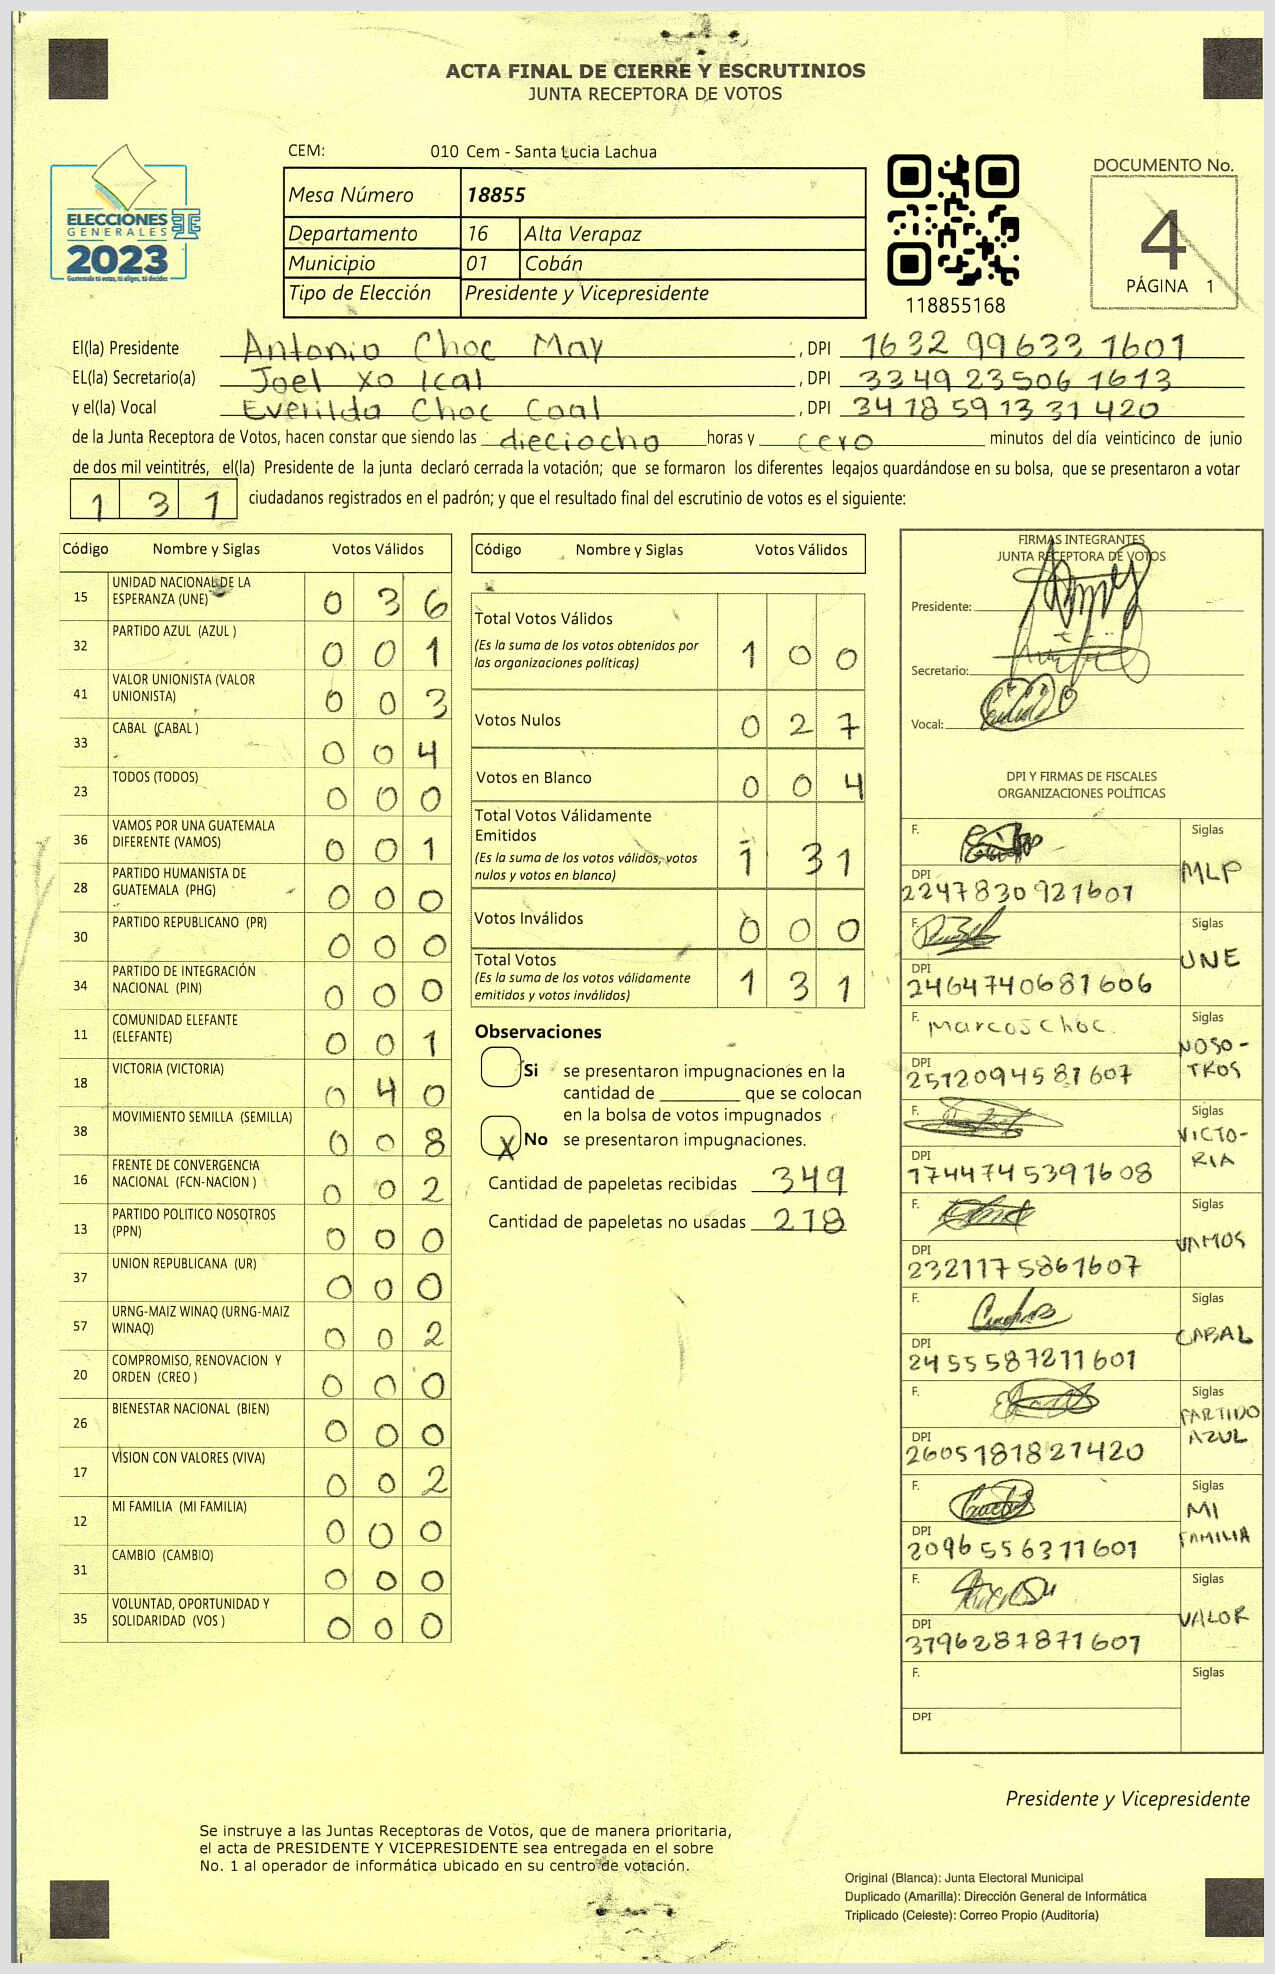 ACTA FINAL DE CIERRE Y ESCRUTINIOS
JUNTA RECEPTORA DE VOTOS
ELECCIONES
GENERALES
2023
Guatemala tú votas, tú eliges, tú decides
CEM: 010 Cem - Santa Lucia Lachua
Mesa Número 18855
Departamento 16 Alta Verapaz
Municipio 01 Cobán
Tipo de Elección Presidente y Vicepresidente
118855168
DOCUMENTO No.
4
PÁGINA 1
El(la) Presidente Antonio Choc May , DPI 1632 99633 1601
EL(la) Secretario(a) Joel xo Ical , DPI 3349 23506 1613
y el(la) Vocal Everilda Choc Caal , DPI 3418 59133 1420
de la Junta Receptora de Votos, hacen constar que siendo las dieciocho horas y cero minutos del día veinticinco de junio
de dos mil veintitrés, el(la) Presidente de la junta declaró cerrada la votación; que se formaron los diferentes legajos guardándose en su bolsa, que se presentaron a votar
1 3 1 ciudadanos registrados en el padrón; y que el resultado final del escrutinio de votos es el siguiente:
Código Nombre y Siglas Votos Válidos
15 UNIDAD NACIONAL DE LA ESPERANZA (UNE) 0 3 6
32 PARTIDO AZUL (AZUL ) 0 0 1
41 VALOR UNIONISTA (VALOR UNIONISTA) 0 0 3
33 CABAL (CABAL ) 0 0 4
23 TODOS (TODOS) 0 0 0
36 VAMOS POR UNA GUATEMALA DIFERENTE (VAMOS) 0 0 1
28 PARTIDO HUMANISTA DE GUATEMALA (PHG) 0 0 0
30 PARTIDO REPUBLICANO (PR) 0 0 0
34 PARTIDO DE INTEGRACIÓN NACIONAL (PIN) 0 0 0
11 COMUNIDAD ELEFANTE (ELEFANTE) 0 0 1
18 VICTORIA (VICTORIA) 0 4 0
38 MOVIMIENTO SEMILLA (SEMILLA) 0 0 8
16 FRENTE DE CONVERGENCIA NACIONAL (FCN-NACION ) 0 0 2
13 PARTIDO POLITICO NOSOTROS (PPN) 0 0 0
37 UNION REPUBLICANA (UR) 0 0 0
57 URNG-MAIZ WINAQ (URNG-MAIZ WINAQ) 0 0 2
20 COMPROMISO, RENOVACION Y ORDEN (CREO ) 0 0 0
26 BIENESTAR NACIONAL (BIEN) 0 0 0
17 VISION CON VALORES (VIVA) 0 0 2
12 MI FAMILIA (MI FAMILIA) 0 0 0
31 CAMBIO (CAMBIO) 0 0 0
35 VOLUNTAD, OPORTUNIDAD Y SOLIDARIDAD (VOS ) 0 0 0
Código Nombre y Siglas Votos Válidos
Total Votos Válidos
(Es la suma de los votos obtenidos por las organizaciones políticas) 1 0 0
Votos Nulos 0 2 7
Votos en Blanco 0 0 4
Total Votos Válidamente Emitidos
(Es la suma de los votos válidos, votos nulos y votos en blanco) 1 3 1
Votos Inválidos 0 0 0
Total Votos
(Es la suma de los votos válidamente emitidos y votos inválidos) 1 3 1
Observaciones
Si se presentaron impugnaciones en la
cantidad de ________ que se colocan
en la bolsa de votos impugnados
X No se presentaron impugnaciones.
Cantidad de papeletas recibidas 349
Cantidad de papeletas no usadas 218
FIRMAS INTEGRANTES
JUNTA RECEPTORA DE VOTOS
Presidente:
Secretario:
Vocal:
DPI Y FIRMAS DE FISCALES
ORGANIZACIONES POLÍTICAS
F. Siglas MLP
DPI 2247830921601
F. Siglas UNE
DPI 2464740681606
F. Marcos Choc. Siglas NOSO-TROS
DPI 2512094581607
F. Siglas VICTO-RIA
DPI 1744745391608
F. Siglas VAMOS
DPI 2321175861607
F. Siglas CABAL
DPI 2455587211601
F. Siglas PARTIDO AZUL
DPI 2605181821420
F. Siglas MI FAMILIA
DPI 2096556311601
F. Siglas VALOR
DPI 3196287871601
F. Siglas
DPI
Presidente y Vicepresidente
Se instruye a las Juntas Receptoras de Votos, que de manera prioritaria,
el acta de PRESIDENTE Y VICEPRESIDENTE sea entregada en el sobre
No. 1 al operador de informática ubicado en su centro de votación.
Original (Blanca): Junta Electoral Municipal
Duplicado (Amarilla): Dirección General de Informática
Triplicado (Celeste): Correo Propio (Auditoría)